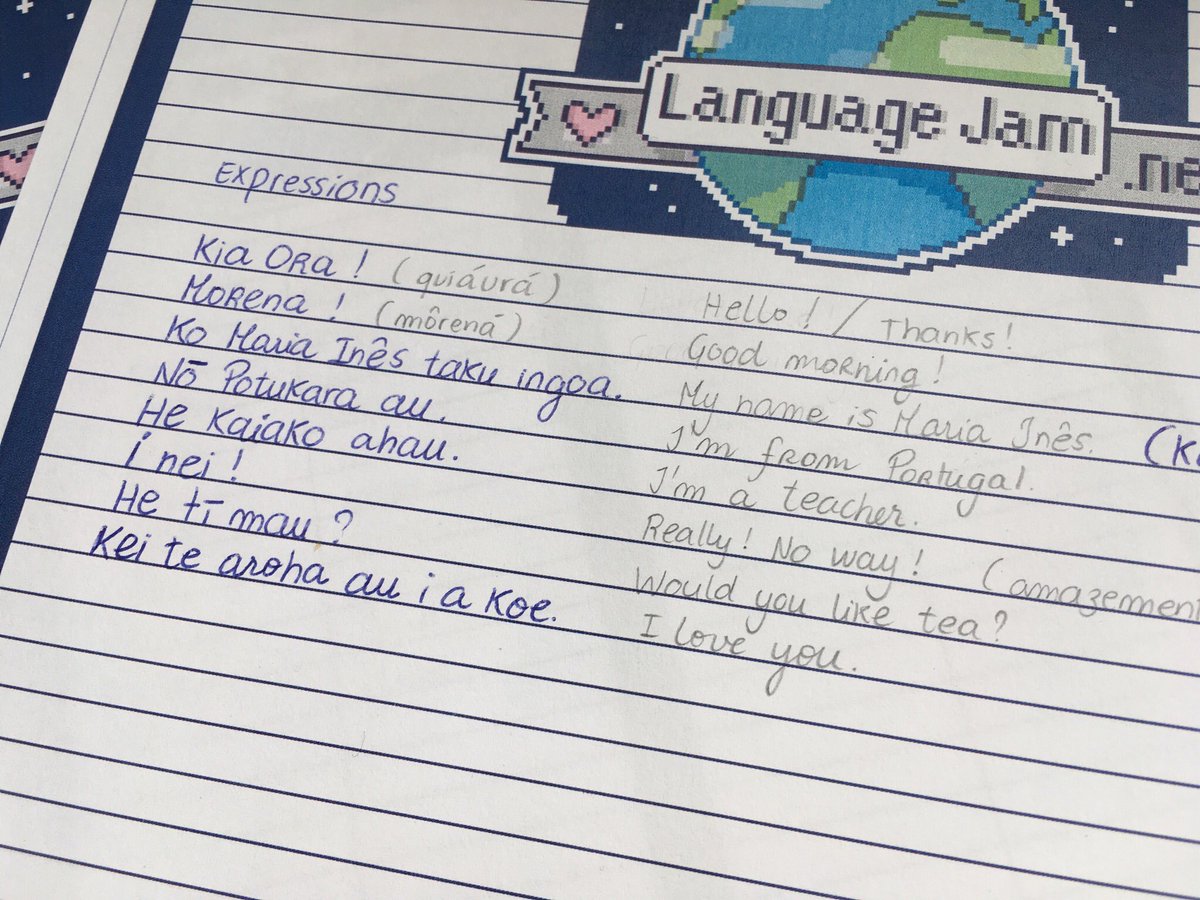 Language Jam
.ne
Expressions
Kia Ora! (quiáurá) Hello! / Thanks!
Morena! (môrená) Good morning!
Ko Maria Inês taku ingoa. My name is Maria Inês. (K
Nō Potukara au. I'm from Portugal.
He Kaiako ahau. I'm a teacher.
Í nei! Really! No way! (amazement
He tī mau? Would you like tea?
Kei te aroha au i a Koe. I love you.